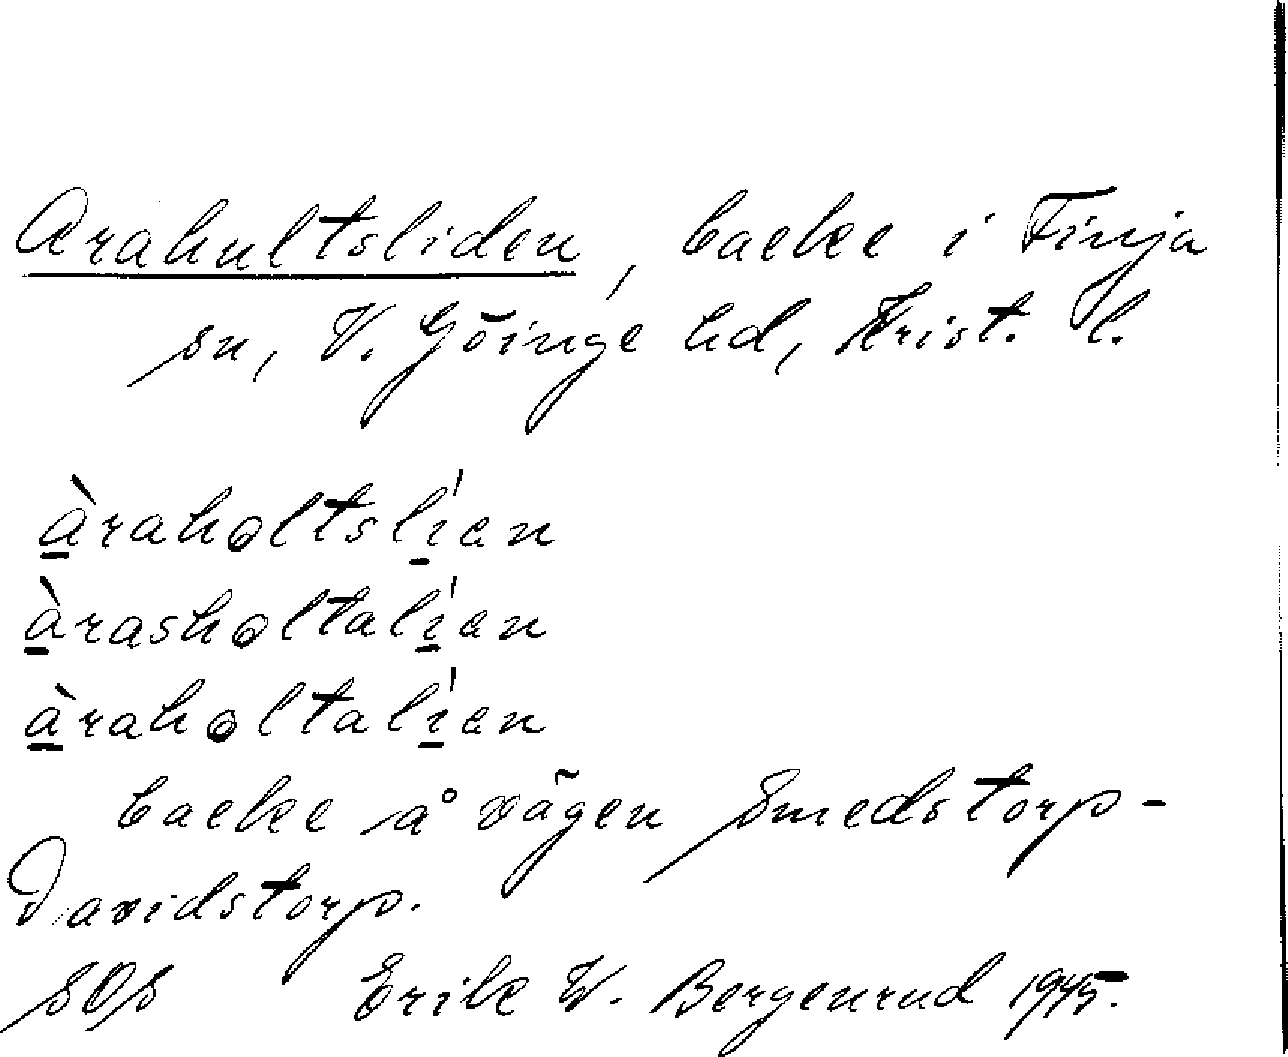 Arahultsliden, backe i Finja
sn, V. Göinge hd, Krist. l.
àraholtslíen
àrasholtalíen
àraholtalíen
backe å vägen Smedstorp-
Davidstorp.
SOS Erik W. Bergenrud 1945.